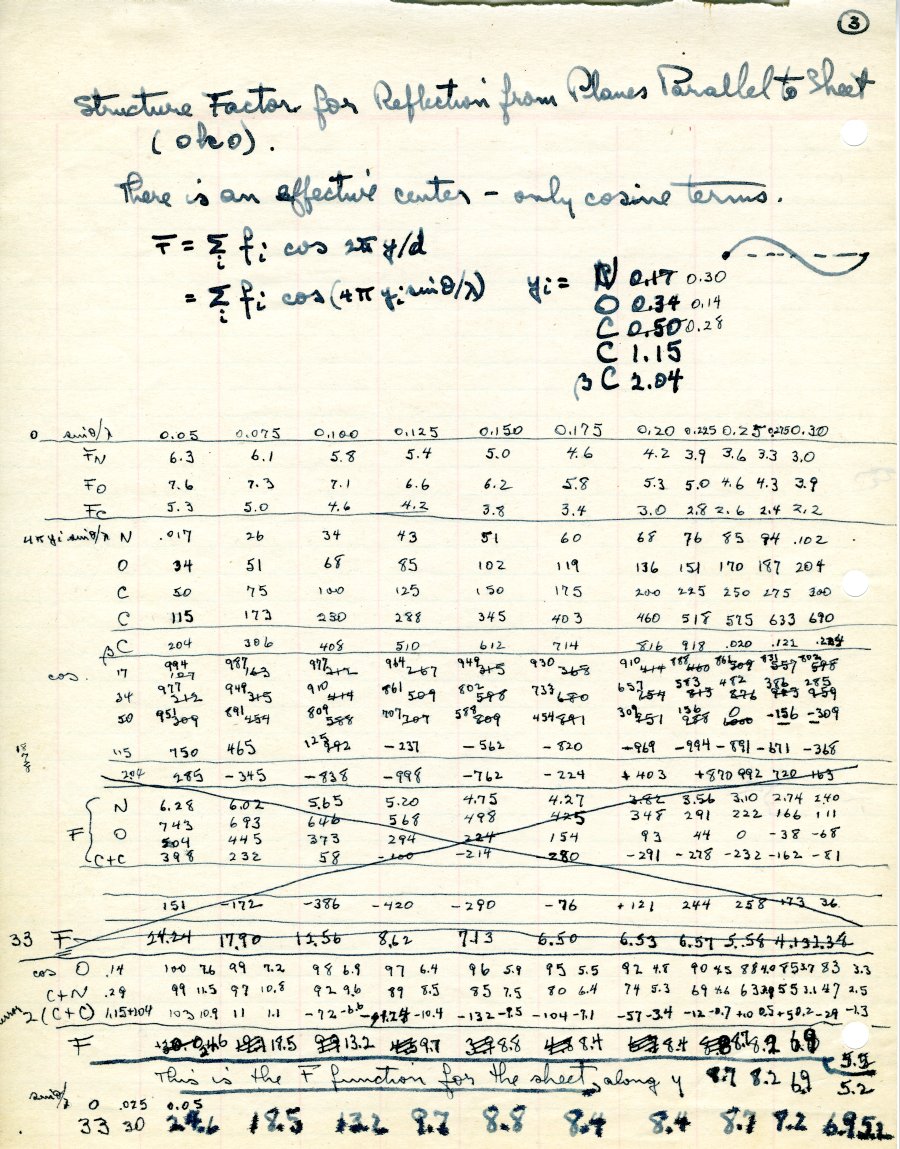 3
Structure Factor for Reflection from Planes Parallel to Sheet
(0k0).
There is an effective center – only cosine terms.
F = Σi fi cos 2π y/d
= Σi fi cos (4π yi sinθ/λ) yi = N 0.17 0.30
O 0.34 0.14
C 0.50 0.28
C 1.15
βC 2.04
0 sinθ/λ 0.05 0.075 0.100 0.125 0.150 0.175 0.20 0.225 0.25 0.275 0.30
FN 6.3 6.1 5.8 5.4 5.0 4.6 4.2 3.9 3.6 3.3 3.0
FO 7.6 7.3 7.1 6.6 6.2 5.8 5.3 5.0 4.6 4.3 3.9
FC 5.3 5.0 4.6 4.2 3.8 3.4 3.0 2.8 2.6 2.4 2.2
4π yi sinθ/λ N .017 26 34 43 51 60 68 76 85 94 .102
O 34 51 68 85 102 119 136 151 170 187 204
C 50 75 100 125 150 175 200 225 250 275 300
C 115 173 230 288 345 403 460 518 575 633 690
βC 204 306 408 510 612 714 816 918 .020 .122
cos. 17 994 987 977 964 949 930 910
34 977 949 910 861 802 733 657 583 482 386 285
50 951 891 809 707 588 454 309 156 0 -156 -309
115 750 465 125 -237 -562 -820 -969 -994 -891 -671 -368
204 285 -345 -838 -998 -762 -224 +403 +870 992 720 163
F N 6.28 6.02 5.65 5.20 4.75 4.27 3.82 3.56 3.10 2.74 240
O 743 693 646 568 498 425 348 291 222 166 111
504 445 373 294 224 154 93 44 0 -38 -68
C+C 398 232 58 -100 -214 -280 -291 -278 -232 -162 -81
151 -172 -386 -420 -290 -76 +121 244 258 +73 36
33 F 24.24 17.90 12.56 8.62 7.13 6.50 6.53 6.57 5.58
cos O .14 100 7.6 99 7.2 98 6.9 97 6.4 96 5.9 95 5.5 92 4.8 90 4.5 88 4.0 85 3.7 83 3.3
C+N .29 99 11.5 97 10.8 92 9.6 89 8.5 85 7.5 80 6.4 74 5.3 69 4.6 63 3.9 55 3.1 47 2.5
2(C+C) 1.15+204 103 10.9 11 1.1 -72 -6.6 -10.4 -132 -9.5 -104 -7.1 -57 -3.4 -12 -0.7 +10 0.5 +5 0.2 -29 -1.3
F 18.5 13.2 9.7 8.8 8.4 8.4 8.7 8.2 6.9 5.2
This is the F function for the sheet, along y 8.7 8.2 6.9 5.2
sinθ/λ 0 .025 0.05
33 30 24.6 18.5 13.2 9.7 8.8 8.4 8.4 8.7 8.2 6.9 5.2